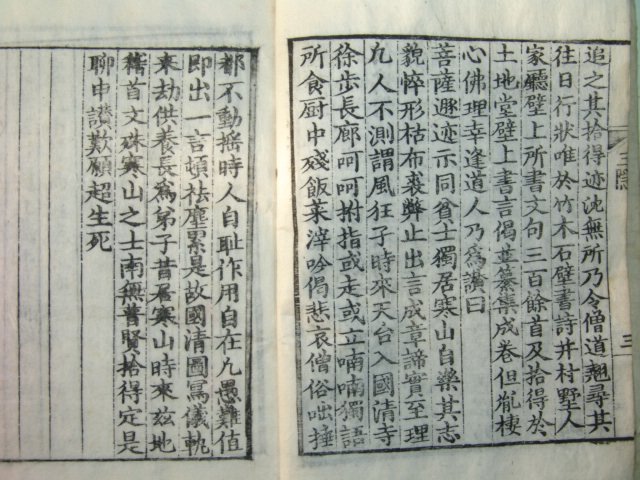 追之其拾得迹沈無所乃令僧道翹尋其
往日行狀唯於竹木石壁書詩并村墅人
家廳壁上所書文句三百餘首及拾得於
土地堂壁上書言偈並纂集成卷但胤棲
心佛理幸逢道人乃爲讃曰
菩薩遯迹示同貧士獨居寒山自樂其志
貌悴形枯布裘弊止出言成章諦實至理
凡人不測謂風狂子時來天台入國清寺
徐步長廊呵呵拊指或走或立喃喃獨語
所食厨中殘飯菜滓吟偈悲哀僧俗咄捶
三隱
三
都不動搖時人自耻作用自在凡愚難値
即出一言頓袪塵累是故國清圖寫儀軌
來劫供養長爲弟子昔居寒山時來玆地
稽首文殊寒山之士南無普賢拾得定是
聊申讃歎願超生死